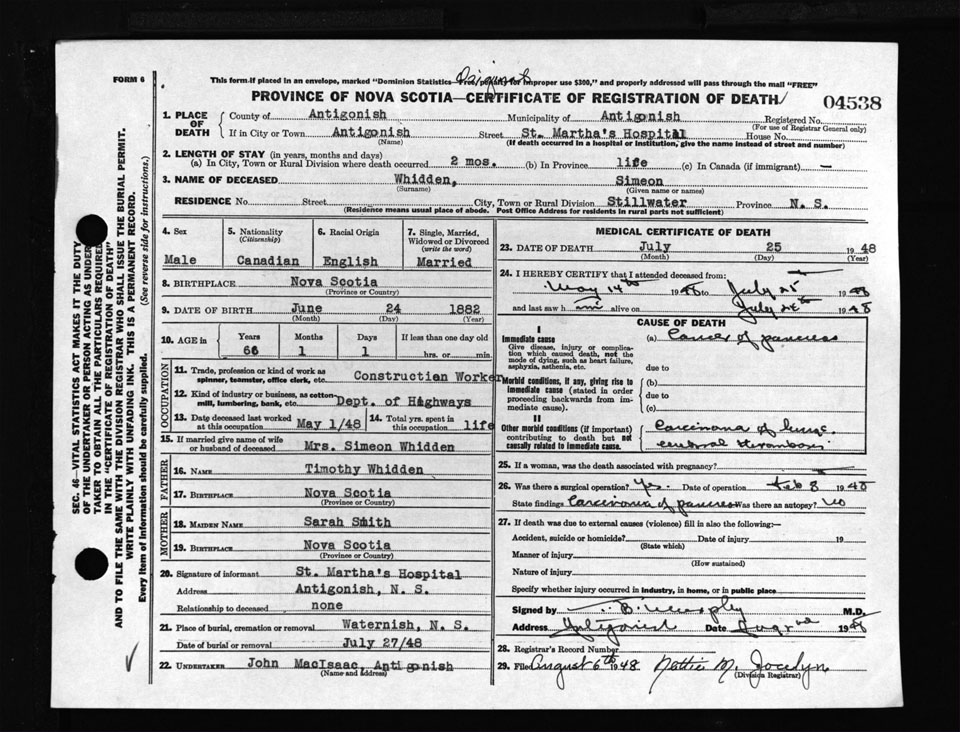 FORM 6
This form if placed in an envelope, marked "Dominion Statistics—Free, penalty for improper use $300," and properly addressed will pass through the mail "FREE"
PROVINCE OF NOVA SCOTIA—CERTIFICATE OF REGISTRATION OF DEATH
04538
1. PLACE OF DEATH County of Antigonish Municipality of Antigonish Registered No.
(For use of Registrar General only)
If in City or Town Antigonish Street St. Martha's Hospital House No.
(Name) (If death occurred in a hospital or institution, give the name instead of street and number)
2. LENGTH OF STAY (in years, months and days)
(a) In City, Town or Rural Division where death occurred 2 mos. (b) In Province life (c) In Canada (if immigrant) —
3. NAME OF DECEASED Whidden, Simeon
(Surname) (Given name or names)
RESIDENCE No. Street City, Town or Rural Division Stillwater Province N. S.
(Residence means usual place of abode. Post Office Address for residents in rural parts not sufficient)
4. Sex 5. Nationality (Citizenship) 6. Racial Origin 7. Single, Married, Widowed or Divorced (write the word)
Male Canadian English Married
8. BIRTHPLACE Nova Scotia
(Province or Country)
9. DATE OF BIRTH June 24 1882
(Month) (Day) (Year)
10. AGE in Years Months Days If less than one day old
66 1 1 hrs. or min.
OCCUPATION
11. Trade, profession or kind of work as spinner, teamster, office clerk, etc. Construction Worker
12. Kind of industry or business, as cotton mill, lumbering, bank, etc. Dept. of Highways
13. Date deceased last worked at this occupation May 1/48 14. Total yrs. spent in this occupation life
15. If married give name of wife or husband of deceased Mrs. Simeon Whidden
FATHER
16. NAME Timothy Whidden
17. BIRTHPLACE Nova Scotia
(Province or Country)
MOTHER
18. MAIDEN NAME Sarah Smith
19. BIRTHPLACE Nova Scotia
(Province or Country)
20. Signature of informant St. Martha's Hospital
Address Antigonish, N. S.
Relationship to deceased none
21. Place of burial, cremation or removal Waternish, N. S.
Date of burial or removal July 27/48
22. UNDERTAKER John MacIsaac, Antigonish
(Name and Address)
MEDICAL CERTIFICATE OF DEATH
23. DATE OF DEATH July 25 1948
(Month) (Day) (Year)
24. I HEREBY CERTIFY that I attended deceased from:
May 14th 1948 to July 25 1948
and last saw h im alive on July 24th 1948
CAUSE OF DEATH
I
Immediate cause (a) Cancer of pancreas
Give disease, injury or complication which caused death, not the mode of dying, such as heart failure, asphyxia, asthenia, etc.
due to
Morbid conditions, if any, giving rise to immediate cause (stated in order proceeding backwards from immediate cause). (b)
due to
(c)
II
Other morbid conditions (if important) contributing to death but not causally related to immediate cause.
Carcinoma of lungs.
cerebral thrombosis
25. If a woman, was the death associated with pregnancy?
26. Was there a surgical operation? Yes. Date of operation Feb 8 1948
State findings Carcinoma of pancreas Was there an autopsy? no
27. If death was due to external causes (violence) fill in also the following:—
Accident, suicide or homicide? Date of injury 19
(State which)
Manner of injury
(How sustained)
Nature of injury
Specify whether injury occurred in industry, in home, or in public place
Signed by B. Murphy M.D.
Address Antigonish Date Aug 2nd 1948
28. Registrar's Record Number
29. Filed August 6th 1948 Nettie M. Jocelyn
(Division Registrar)
SEC. 46—VITAL STATISTICS ACT MAKES IT THE DUTY
OF THE UNDERTAKER OR PERSON ACTING AS UNDER-
TAKER TO OBTAIN ALL THE PARTICULARS REQUIRED
IN THE "CERTIFICATE OF REGISTRATION OF DEATH"
AND TO FILE THE SAME WITH THE DIVISION REGISTRAR WHO SHALL ISSUE THE BURIAL PERMIT.
WRITE PLAINLY WITH UNFADING INK. THIS IS A PERMANENT RECORD.
Every item of Information should be carefully supplied. (See reverse side for instructions.)